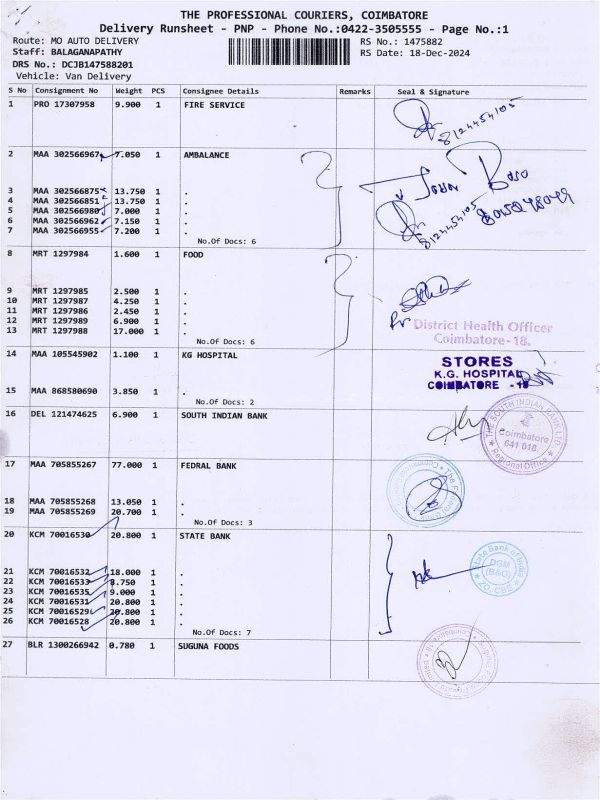 THE PROFESSIONAL COURIERS, COIMBATORE
Delivery Runsheet - PNP - Phone No.:0422-3505555 - Page No.:1
Route: MO AUTO DELIVERY RS No.: 1475882
Staff: BALAGANAPATHY RS Date: 18-Dec-2024
DRS No.: DCJB147588201
Vehicle: Van Delivery
S No Consignment No Weight PCS Consignee Details Remarks Seal & Signature
1 PRO 17307958 9.900 1 FIRE SERVICE
8124454105
2 MAA 302566967 7.050 1 AMBALANCE
3 MAA 302566875 13.750 1 .
4 MAA 302566851 13.750 1 .
5 MAA 302566980 7.000 1 .
6 MAA 302566962 7.150 1 .
7 MAA 302566955 7.200 1 .
8124454105
No.Of Docs: 6
8 MRT 1297984 1.600 1 FOOD
9 MRT 1297985 2.500 1 .
10 MRT 1297987 4.250 1 .
11 MRT 1297986 2.450 1 .
12 MRT 1297989 6.900 1 .
13 MRT 1297988 17.000 1 .
No.Of Docs: 6
District Health Officer
Coimbatore-18.
14 MAA 105545902 1.100 1 KG HOSPITAL
STORES
K.G. HOSPITAL
COIMBATORE - 18
15 MAA 868580690 3.850 1 .
No.Of Docs: 2
16 DEL 121474625 6.900 1 SOUTH INDIAN BANK
THE SOUTH INDIAN BANK LTD
Coimbatore
641 018.
Regional Office
17 MAA 705855267 77.000 1 FEDRAL BANK
18 MAA 705855268 13.050 1 .
19 MAA 705855269 20.700 1 .
No.Of Docs: 3
20 KCM 70016530 20.800 1 STATE BANK
21 KCM 70016532 18.000 1 .
22 KCM 70016533 8.750 1 .
23 KCM 70016535 9.000 1 .
24 KCM 70016531 20.800 1 .
25 KCM 70016529 20.800 1 .
26 KCM 70016528 20.800 1 .
No.Of Docs: 7
State Bank of India
DGM
(B&O)
ZO, CBE
27 BLR 1300266942 0.780 1 SUGUNA FOODS